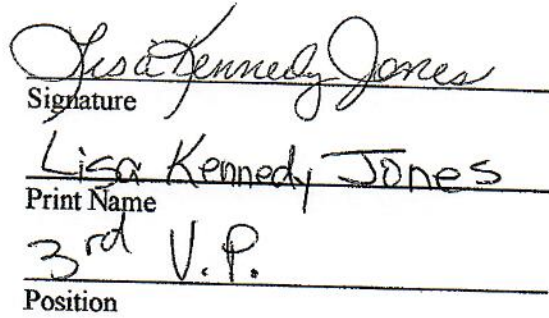 Lisa Kennedy Jones
Signature
Lisa Kennedy Jones
Print Name
3rd V.P.
Position